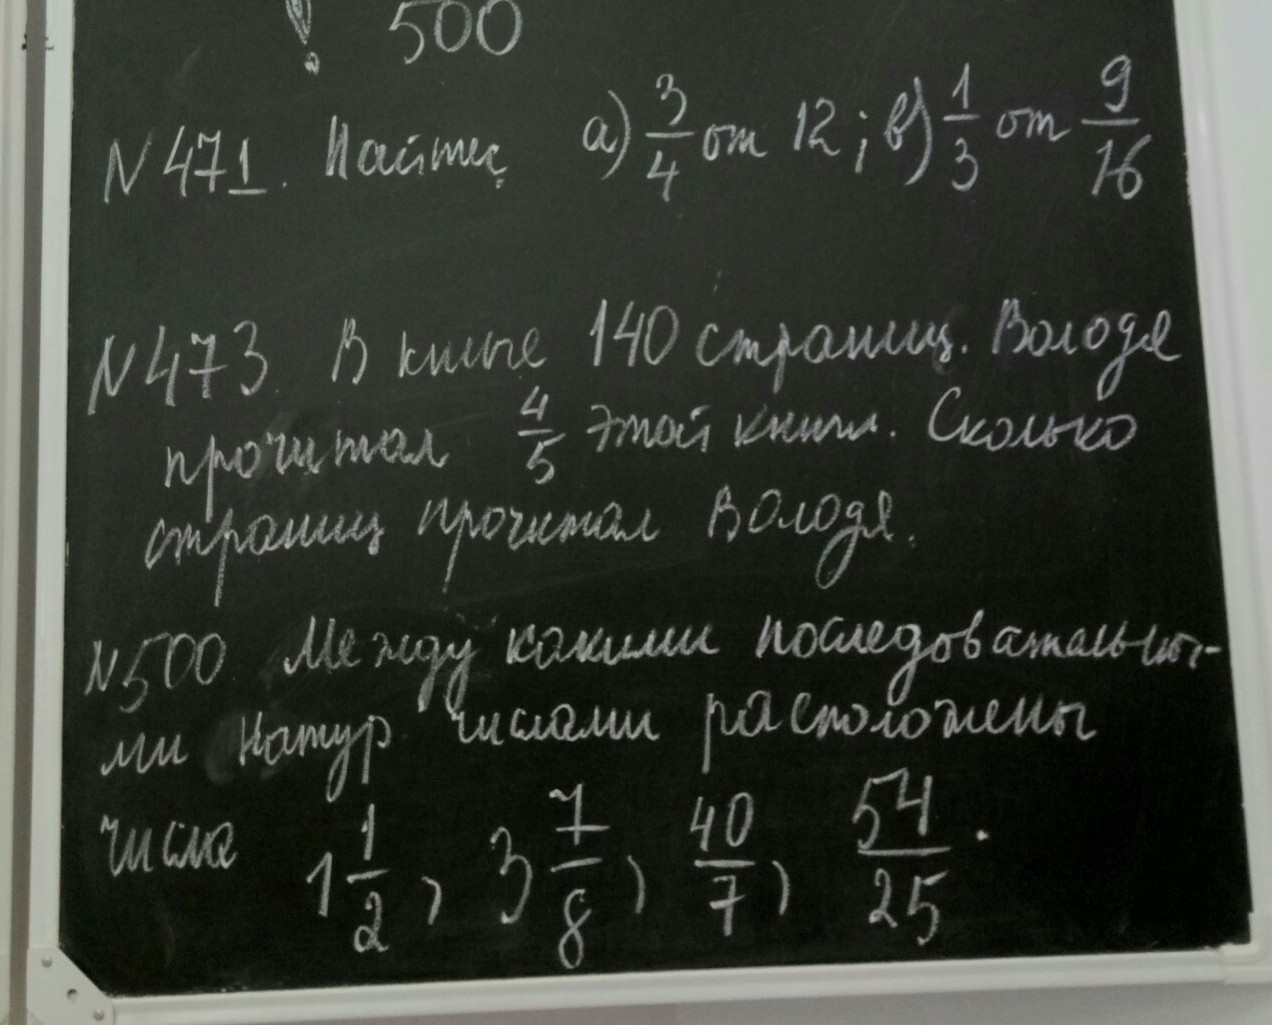 ! 500
N 471. Найти: а) 3/4 от 12; в) 1/3 от 9/16
N 473. В книге 140 страниц. Володя
прочитал 4/5 этой книги. Сколько
страниц прочитал Володя.
N 500 Между какими последовательны-
ми натур числами расположены
числа 1 1/2, 3 7/8, 40/7, 54/25.